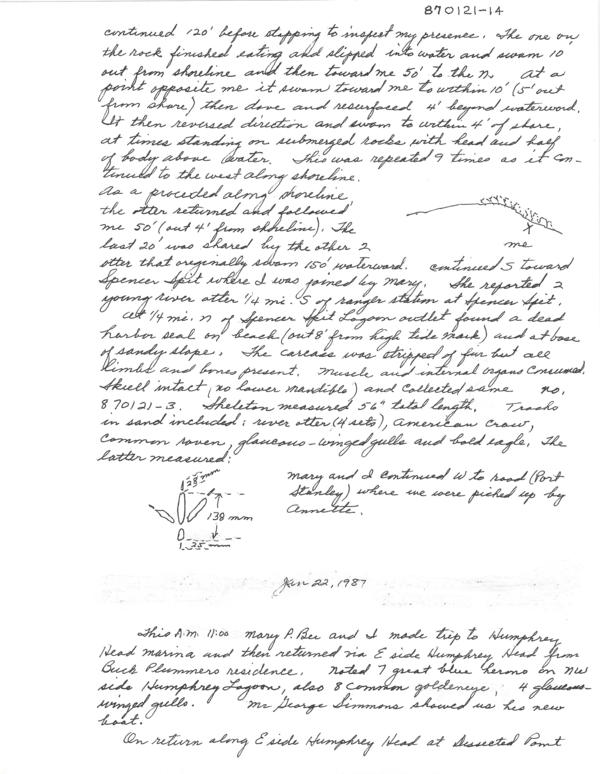 870121-14
continued 120' before stopping to inspect my presence. The one on
the rock finished eating and slipped into water and swam 10'
out from shoreline and then toward me 50' to the N. At a
point opposite me it swam toward me to within 10' (5' out
from shore) then dove and resurfaced 4' beyond waterward.
It then reversed direction and swam to within 4' of shore,
at times standing on submerged rocks with head and half
of body above water. This was repeated 9 times as it con-
tinued to the west along shoreline.
As a proceded along shoreline
the otter returned and followed
me 50' (out 4' from shoreline). The
last 20' was shared by the other 2
X
me
otter that originally swam 150' waterward. continued S toward
Spencer Spit where I was joined by Mary. She reported 2
young river otter 1/4 mi. S of ranger station at Spencer Spit.
At 1/4 mi. N of Spencer Spit Lagoon outlet found a dead
harbor seal on beach (out 8' from high tide mark) and at base
of sandy slope. The carcass was stripped of fur but all
limbs and bones present. Muscle and internal organs consumed.
Skull intact, no lower mandible) and collected same no.
870121-3. Skeleton measured 56" total length. Tracks
in sand included: river otter (4 sets), American crow,
common raven, glaucous-winged gulls and bald eagle. The
latter measured:
mm
138 mm
25 mm
Mary and I continued W to road (Port
Stanley) where we were picked up by
Annette.
Jan 22, 1987
This A.M. 11:00 Mary P. Bee and I made trip to Humphrey
Head marina and then returned via E side Humphrey Head from
Buck Plummers residence. Noted 7 great blue herons on NW
side Humphrey Lagoon, also 8 common goldeneye, 4 glaucous-
winged gulls. Mr George Simmons showed us his new
boat.
On return along E side Humphrey Head at Dissected Point